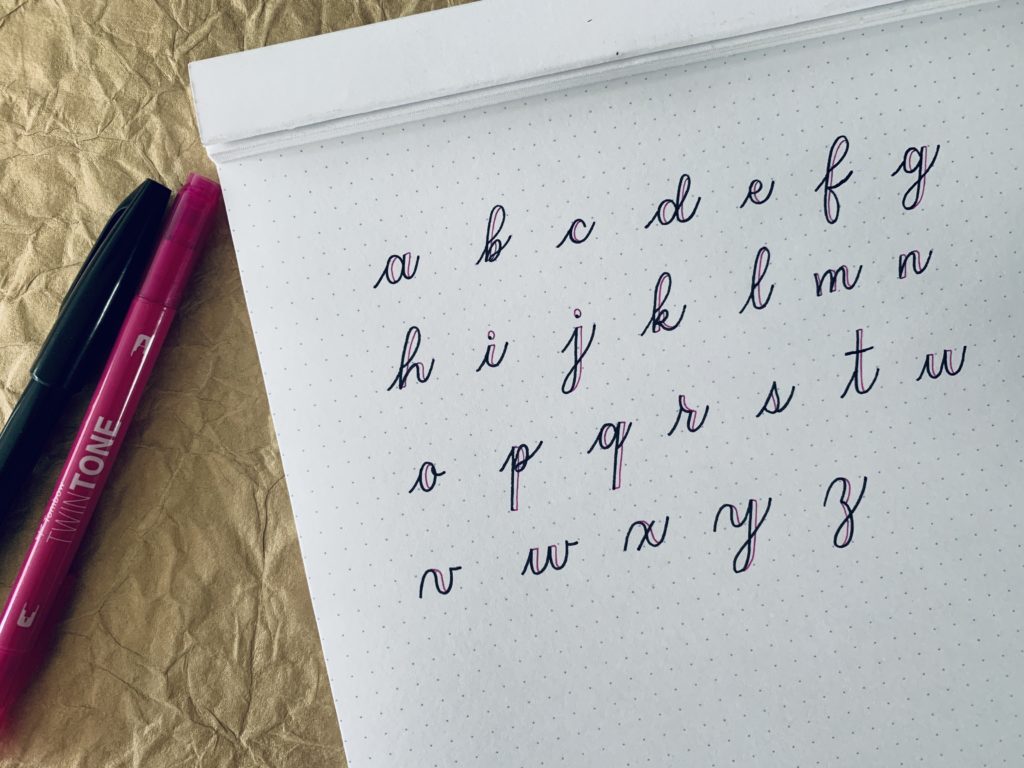 a b c d e f g
h i j k l m n
o p q r s t u
v w x y z
TWINTONE